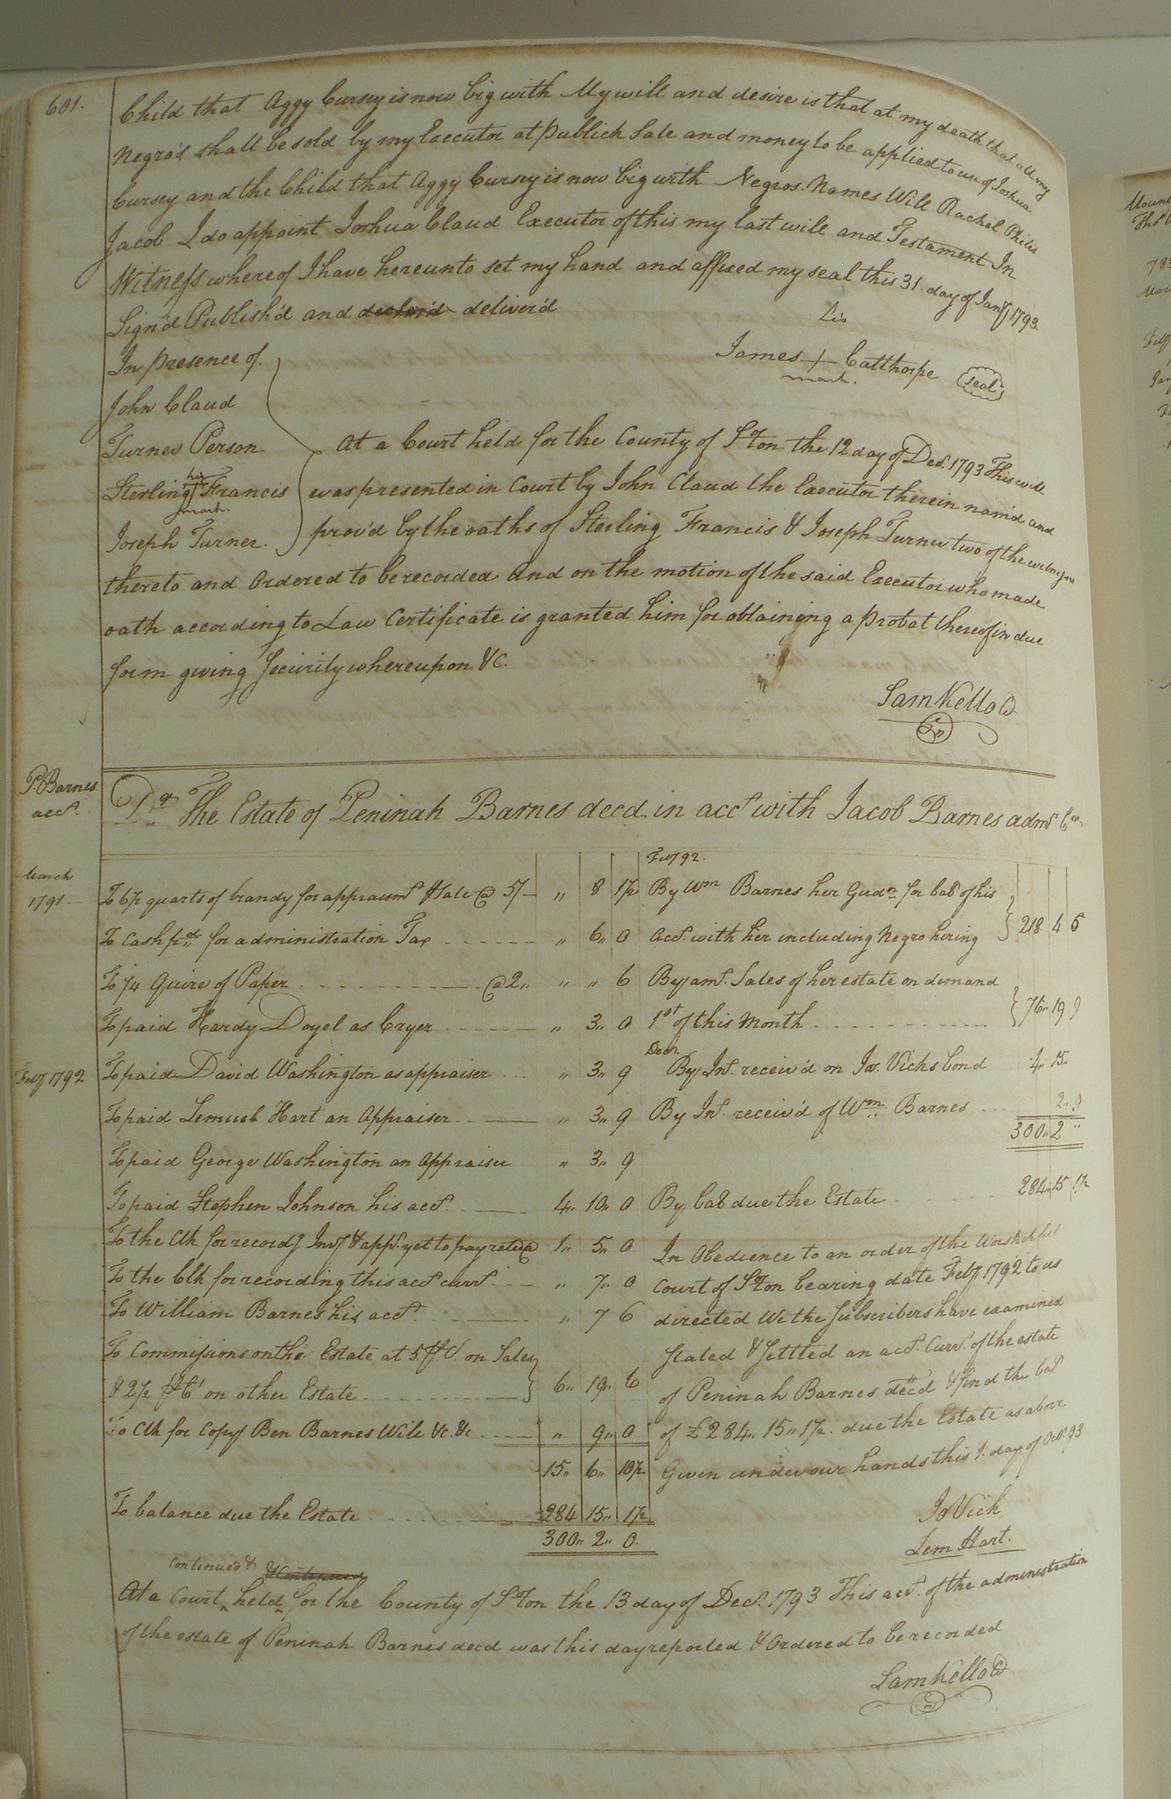 601.
Child that Aggy Cursey is now big with My will and desire is that at my death that all my
Negro's shall be sold by my Executor at publick Sale and money to be applied to use of Joshua
Cursey and the Child that Aggy Cursey is now big with Negros Names Will Rachel Philis
Jacob I do appoint Joshua Claud Executor of this my last will and Testament In
Witness whereof I have hereunto set my hand and affixed my seal this 31. day of Jany 1793.
Sign'd Publish'd and declar'd deliver'd
his
In presence of
James + Catthorpe seal
mark.
John Claud
Turner Person
At a Court held for the County of S°ton the 12 day of Decr. 1793 This will
his
Sterling Francis
mark.
was presented in Court by John Claud the Executor therein nam'd and
Joseph Turner.
prov'd by the oaths of Sterling Francis & Joseph Turner two of the witnesses
thereto and Ordered to be recorded and on the motion of the said Executor who made
oath according to Law Certificate is granted him for obtaining a probat thereof in due
form giving Security whereupon &C.
Sam Kello Cl
P. Barnes
acct.
Dr The Estate of Peninah Barnes decd. in acct with Jacob Barnes admr Cr
Feby 92.
March
1791
To 6½ quarts of brandy for appraismt & Sale @ 5/ " 8 1½
By Wm Barnes her Gudn for bale of his
To Cash pd for administration Tax " 6" 0
acct. with her including Negro hiring 218 4 6
To ¼ Quire of Paper @ 2" " " 6
By amt. Sales of her estate on demand
To paid Hardy Doyel as Cryer " 3" 0
1st of this Month 76" 19 9
Decr.
Feby 1792
To paid David Washington as appraiser " 3" 9
By Int. receiv'd on Jos. Vicks bond 4" 15"
To paid Lemuel Hart an Appraiser " 3" 9
By Int. receiv'd of Wm Barnes 2" 9
300" 2 "
To paid George Washington an Appraiser " 3" 9
To paid Stephen Johnson his acct. 4" 10" 0
By bale due the Estate 284" 15 1½
To the Clk for recordg Invy & appt. yet to pay rated @ 1" 5" 0
In Obedience to an order of the Worshipful
To the Clk for recording this acct currt. " 7" 0
Court of S°ton bearing date Feby 1792 to us
To William Barnes his acct. " 7 6
directed We the Subscribers have examined
To Commissions on the Estate at 5 pCt. on Sales
Stated & Settled an acct. Currt. of the estate
& 2½ pCt on other Estate 6" 19" 6
of Peninah Barnes decd & find the bale
To Clk for Copy Ben Barnes Will &c. &c " 9" 0
of £284" 15" 1½. due the Estate as above
15" 6" 10½
Given under our hands this 1. day of Octr 93
To balance due the Estate 284 15" 1½
Jo Vick
300" 2" 0.
Lem Hart.
Continued & Continued
At a Court held for the County of S°ton the 13 day of Decr. 1793 This acct. of the administration
of the estate of Peninah Barnes decd was this day reported & Ordered to be recorded
Sam Kello Cl